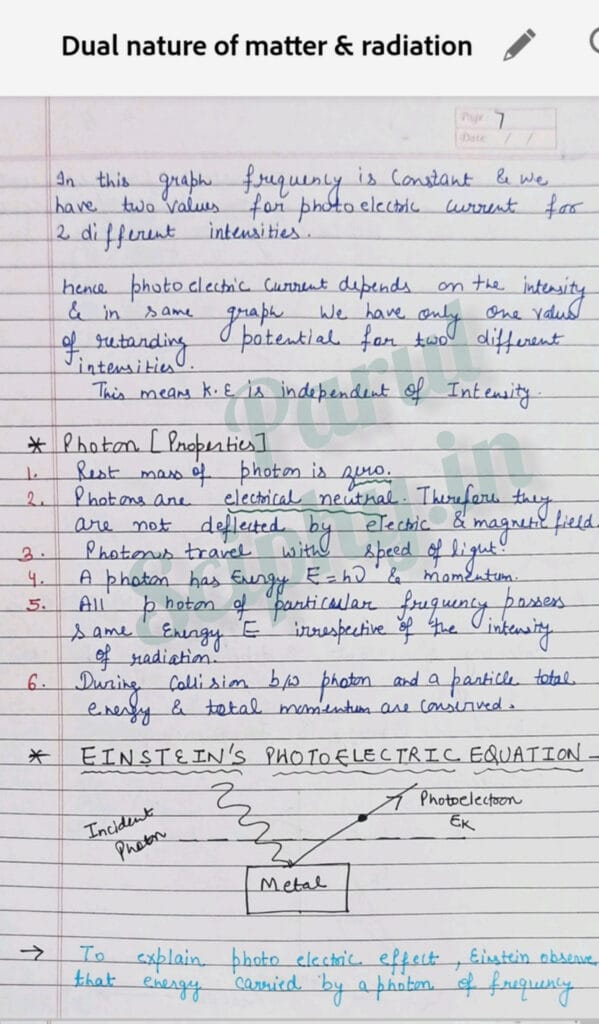 Dual nature of matter & radiation
Page 7
Date / /
In this graph frequency is Constant & we
have two values for photoelectric current for
2 different intensities.
hence photoelectric Current depends on the intensity
& in same graph We have only one value
of retanding potential for two different
intensities.
This means K.E is independent of Intensity.
* Photon [Properties]
1. Rest mass of photon is zero.
2. Photons are electrical neutral. Therefore they
are not deflected by electric & magnetic field.
3. Photons travel with speed of light.
4. A photon has Energy E = hν & momentum.
5. All photon of particular frequency passess
same Energy E irrespective of the intensity
of radiation.
6. During Collision b/w photon and a particle total
energy & total momentum are conserved.
* EINSTEIN'S PHOTOELECTRIC EQUATION -
Incident
Photon
Photoelectron
EK
Metal
→ To explain photo electric effect, Einstein observe
that energy carried by a photon of frequency
Parul
Sciphy.in